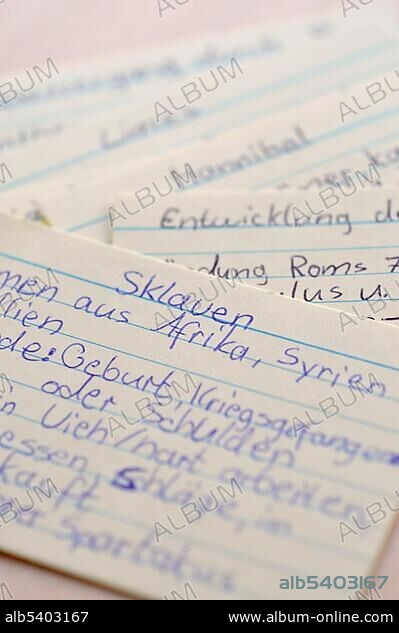 Limes
Hannibal
Entwicklung de
ndung Roms 7
lus u.
Sklaven
men aus Afrika, Syrien
ien
de: Geburt, Kriegsgefangen
oder Schulden
Vieh/hart arbeiten
essen, Schläge, in
kauft
Spartakus
ALBUM
alb5403167
alb5403167
www.album-online.com